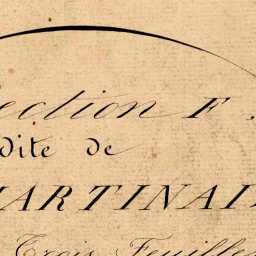 ection F.
dite de
MARTINAI
Trois Feuille